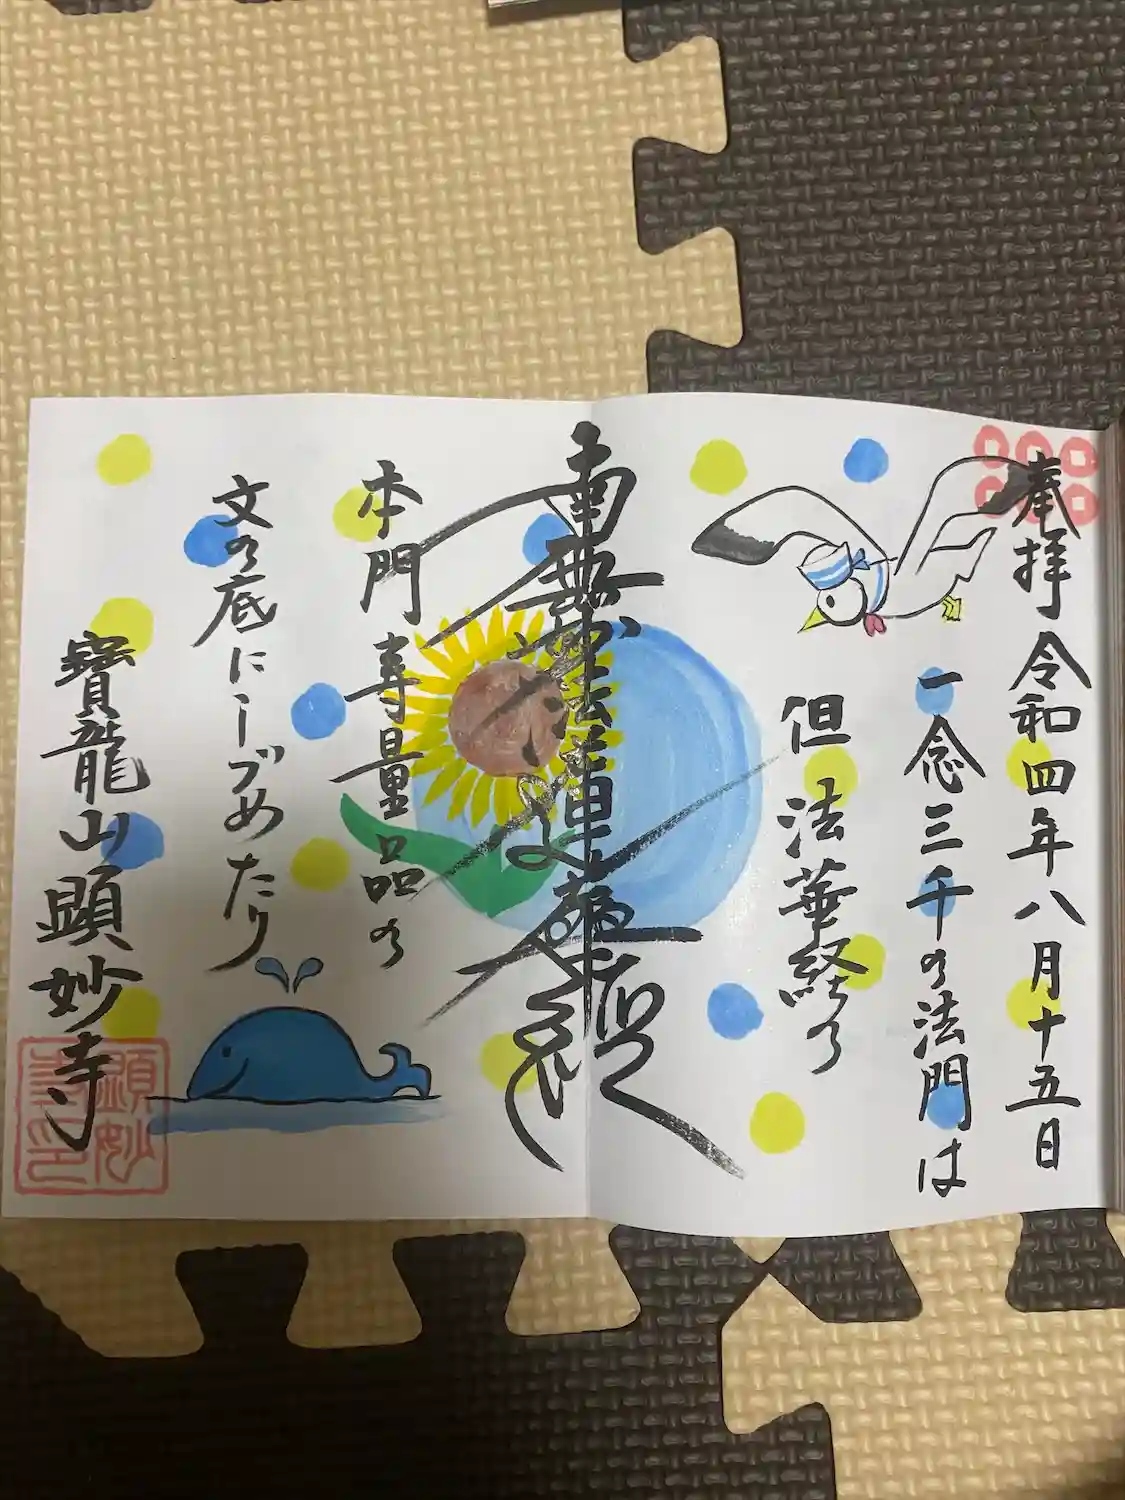 奉拝 令和四年八月十五日
一念三千の法門は
但法華経の
南無妙法蓮華経
本門寿量品の
文の底にしづめたり
寶龍山顕妙寺
顕妙
寺印